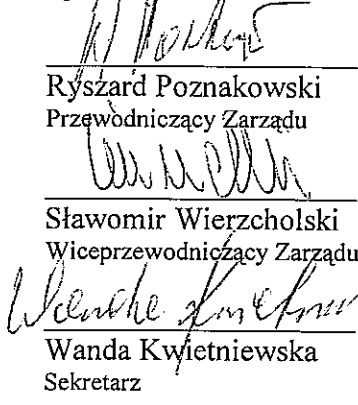 Ryszard Poznakowski
Przewodniczący Zarządu
Sławomir Wierzcholski
Wiceprzewodniczący Zarządu
Wanda Kwietniewska
Sekretarz